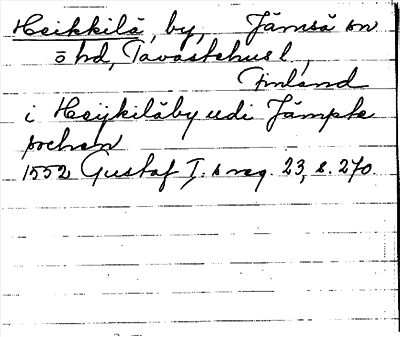 Heikkilä, by, Jämsä sn
ö hd, Tavastehus l,
Finland
i Heijkiläby udi Jämpte
sochen
1552 Gustaf I:s reg. 23, s. 270.